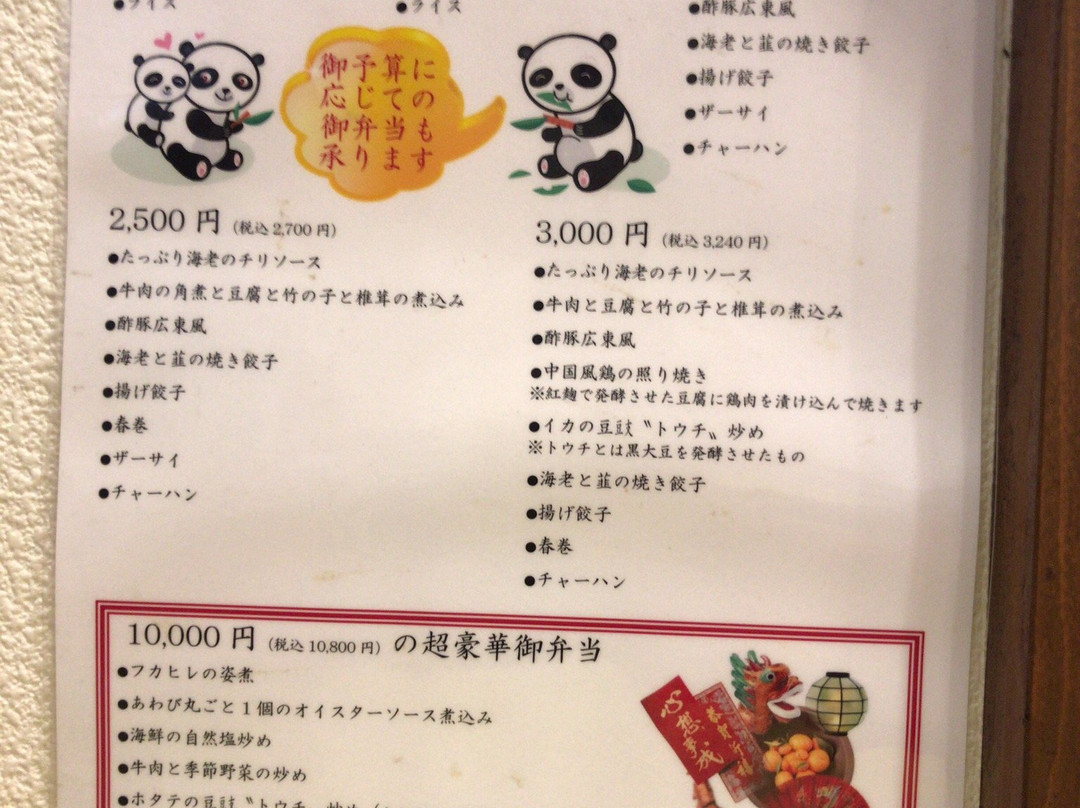 ●ライス
●ライス
●酢豚広東風
●海老と韮の焼き餃子
●揚げ餃子
●ザーサイ
●チャーハン
御予算に
応じての
御弁当も
承ります
2,500 円 (税込 2,700 円)
●たっぷり海老のチリソース
●牛肉の角煮と豆腐と竹の子と椎茸の煮込み
●酢豚広東風
●海老と韮の焼き餃子
●揚げ餃子
●春巻
●ザーサイ
●チャーハン
3,000 円 (税込 3,240 円)
●たっぷり海老のチリソース
●牛肉と豆腐と竹の子と椎茸の煮込み
●酢豚広東風
●中国風鶏の照り焼き
※紅麹で発酵させた豆腐に鶏肉を漬け込んで焼きます
●イカの豆豉〝トウチ〟炒め
※トウチとは黒大豆を発酵させたもの
●海老と韮の焼き餃子
●揚げ餃子
●春巻
●チャーハン
10,000 円 (税込 10,800 円) の超豪華御弁当
●フカヒレの姿煮
●あわび丸ごと1個のオイスターソース煮込み
●海鮮の自然塩炒め
●牛肉と季節野菜の炒め
●ホタテの豆豉〝トウチ〟炒め
心想事成
恭賀新禧